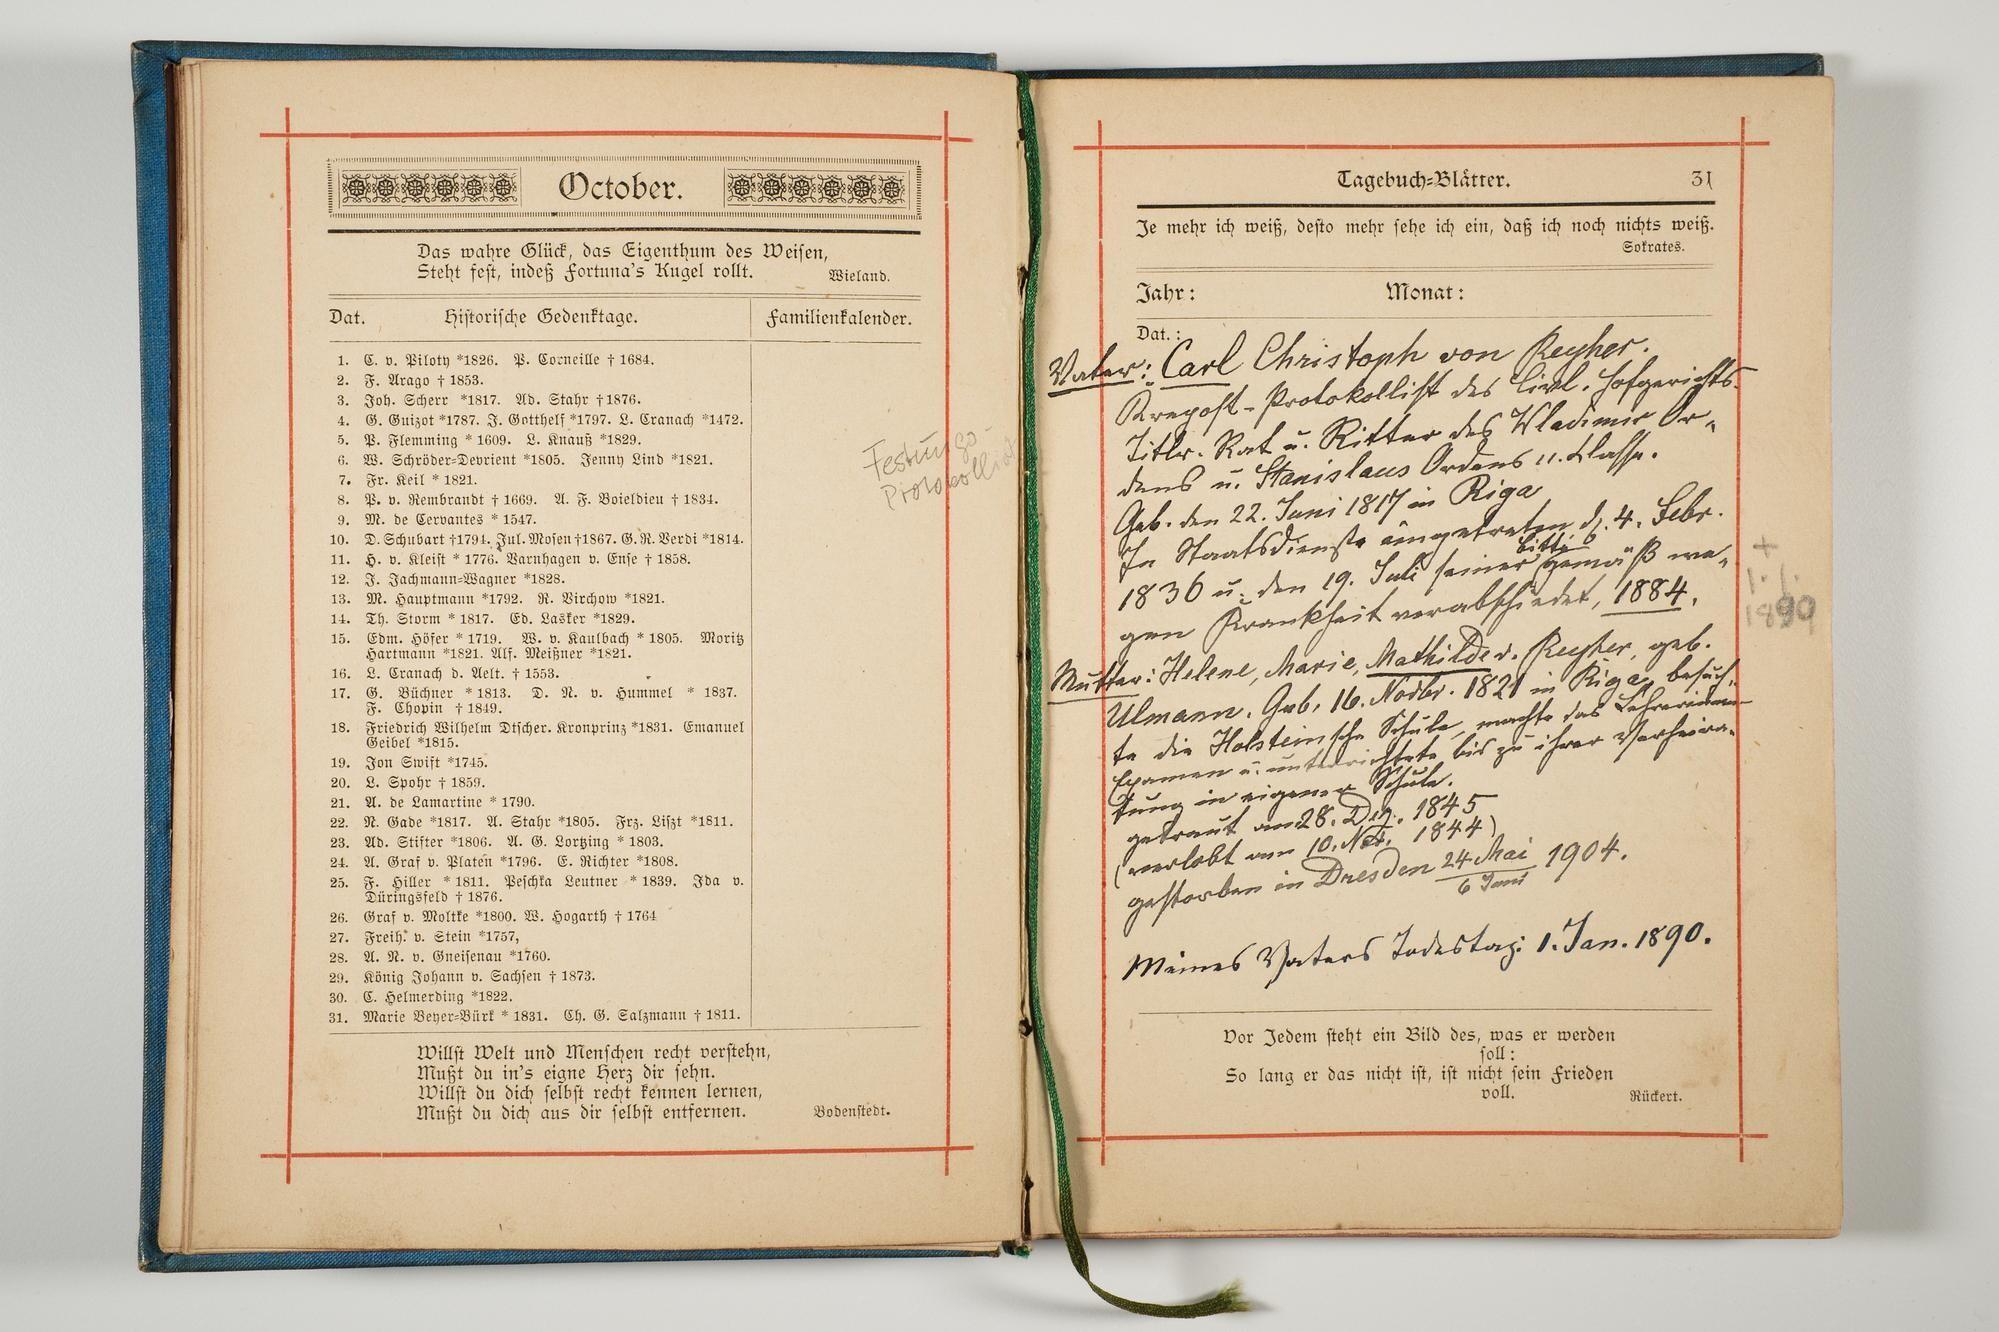 October.
Das wahre Glück, das Eigenthum des Weisen,
Steht fest, indeß Fortuna's Kugel rollt.
Wieland.
Dat. Historische Gedenktage. Familienkalender.
1. C. v. Piloty *1826. P. Corneille † 1684.
2. F. Arago † 1853.
3. Joh. Scherr *1817. Ad. Stahr †1876.
4. G. Guizot *1787. J. Gotthelf *1797. L. Cranach *1472.
5. P. Flemming * 1609. L. Knauß *1829.
6. W. Schröder=Devrient *1805. Jenny Lind *1821.
7. Fr. Keil * 1821.
8. P. v. Rembrandt † 1669. A. F. Boieldieu † 1834.
9. M. de Cervantes * 1547.
10. D. Schubart †1794. Jul. Mosen †1867. G. R. Verdi *1814.
11. H. v. Kleist * 1776. Varnhagen v. Ense † 1858.
12. J. Jachmann=Wagner *1828.
13. M. Hauptmann *1792. R. Virchow *1821.
14. Th. Storm * 1817. Ed. Lasker *1829.
15. Edm. Höfer * 1719. W. v. Kaulbach * 1805. Moritz
Hartmann *1821. Alf. Meißner *1821.
16. L. Cranach d. Aelt. † 1553.
17. G. Büchner * 1813. D. N. v. Hummel * 1837.
F. Chopin † 1849.
18. Friedrich Wilhelm Dtscher. Kronprinz *1831. Emanuel
Geibel *1815.
19. Jon Swift *1745.
20. L. Spohr † 1859.
21. A. de Lamartine * 1790.
22. N. Gade *1817. A. Stahr *1805. Frz. Liszt *1811.
23. Ad. Stifter *1806. A. G. Lortzing * 1803.
24. A. Graf v. Platen *1796. E. Richter *1808.
25. F. Hiller * 1811. Peschka Leutner * 1839. Ida v.
Düringsfeld † 1876.
26. Graf v. Moltke *1800. W. Hogarth † 1764
27. Freih. v. Stein *1757,
28. A. N. v. Gneisenau *1760.
29. König Johann v. Sachsen † 1873.
30. C. Helmerding *1822.
31. Marie Beyer=Bürk * 1831. Ch. G. Salzmann † 1811.
Festungs-
Protokollist
Willst Welt und Menschen recht verstehn,
Mußt du in's eigne Herz dir sehn.
Willst du dich selbst recht kennen lernen,
Mußt du dich aus dir selbst entfernen.
Bodenstedt.
Tagebuch=Blätter. 31
Je mehr ich weiß, desto mehr sehe ich ein, daß ich noch nichts weiß.
Sokrates.
Jahr: Monat:
Dat.:
Vater: Carl Christoph von Reyher.
Krepost-Protokollist des Livl. Hofgerichts.
Titlr. Rat u. Ritter des Wladimir Or-
dens u. Stanislaus Ordens II. Klasse.
Geb. den 22. Juni 1817 in Riga
In Staatsdienste eingetreten d. 4. Febr.
1836 u. den 19. Juli seiner Bitte gemäß we-
gen Krankheit verabschiedet, 1884.
+
1. 1.
1890
Mutter: Helene, Marie, Mathilde v. Reyher, geb.
Ulmann. Geb. 16. Novbr. 1821 in Riga, besuch-
te die Holsteinsche Schule, machte das Lehrerinnen-
Examen u. unterrichtete bis zu ihrer Verheira-
tung in eigener Schule.
getraut am 28. Dez. 1845
(verlobt am 10. Nov. 1844)
gestorben in Dresden 24 Mai 1904.
6 Juni
Meines Vaters Todestag: 1. Jan. 1890.
Vor Jedem steht ein Bild des, was er werden
soll:
So lang er das nicht ist, ist nicht sein Frieden
voll.
Rückert.